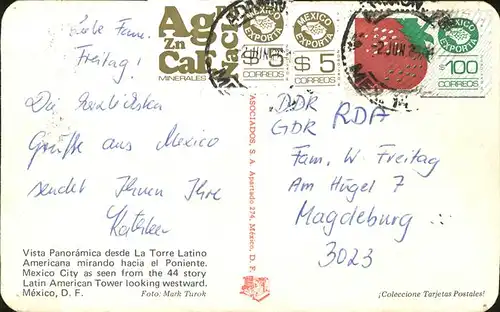 Liebe Fam.
Freitag!
Die herzlichsten
Grüße aus Mexico
sendet Ihnen Ihre
Kathleen
Vista Panorámica desde La Torre Latino
Americana mirando hacia el Poniente.
Mexico City as seen from the 44 story
Latin American Tower looking westward.
México, D. F. Foto: Mark Turok
ASOCIADOS, S. A. Apartado 274, México, D. F.
Ag
Zn
Ca
MINERALES
MEXICO
EXPORTA
$5
CORREOS
MEXICO
EXPORTA
$5
CORREOS
EXPORTA
$100
CORREOS
2 JUN
DDR
GDR RDA
Fam. W. Freitag
Am Hügel 7
Magdeburg
3023
¡Coleccione Tarjetas Postales!